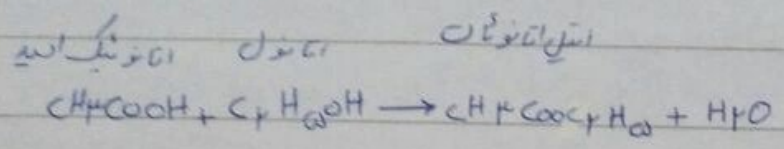 اتانوئیک اسید اتانول اتیل اتانوئات
CH۳COOH + C۲H۵OH → CH۳COOC۲H۵ + H۲O